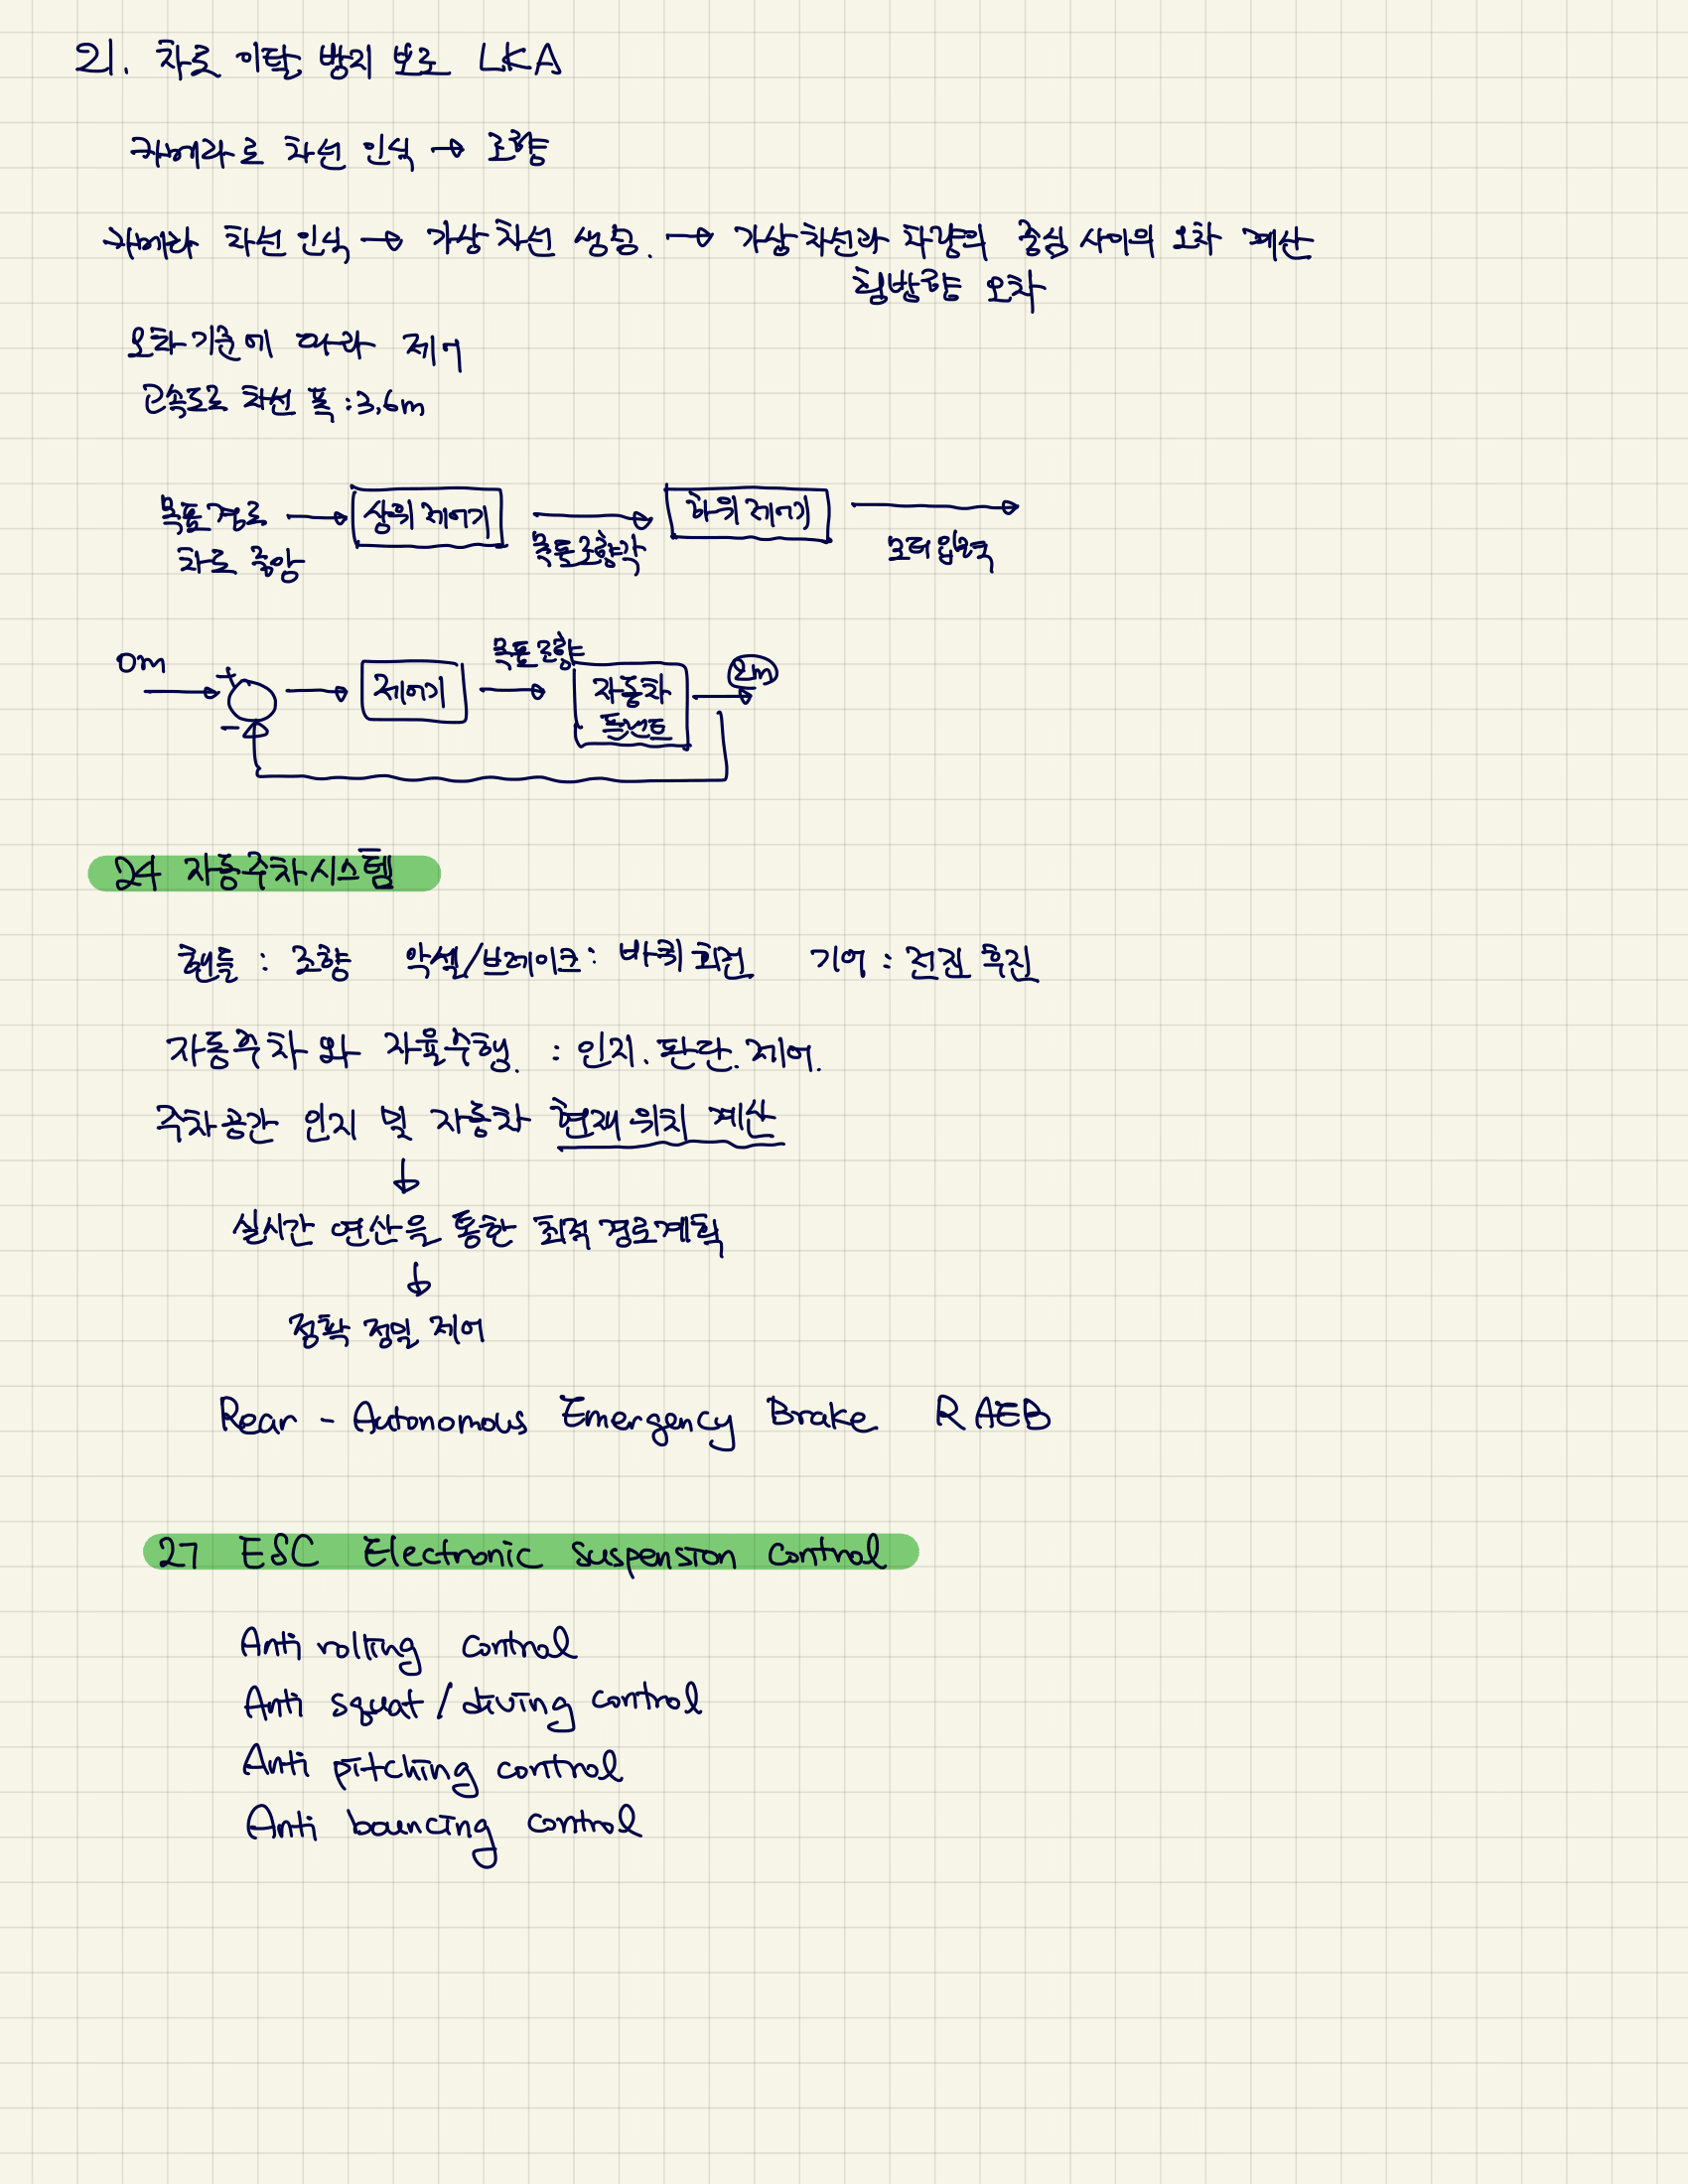 21. 차로 이탈 방지 보조 LKA
카메라로 차선 인식 → 조향
카메라 차선 인식 → 가상 차선 생성. → 가상 차선과 차량의 중심 사이의 오차 계산
횡방향 오차
오차 기준에 따라 제어
고속도로 차선 폭 : 3.6m
목표 경로 → 상위 제어기 → 하위 제어기 →
차로 중앙 목표 조향각 모터 입력
0m + 제어기 목표 조향 자동차
플랜트
-
24 자동주차시스템
핸들 : 조향 악셀/브레이크 : 바퀴 회전 기어 : 전진 후진
자동주차 와 자율주행. : 인지. 판단. 제어.
주차공간 인지 및 자동차 현재 위치 계산
↓
실시간 연산을 통한 최적 경로계획
↓
정확 정밀 제어
Rear - Autonomous Emergency Brake RAEB
27 ESC Electronic suspension control
Anti rolling control
Anti squat / diving control
Anti pitching control
Anti bouncing control